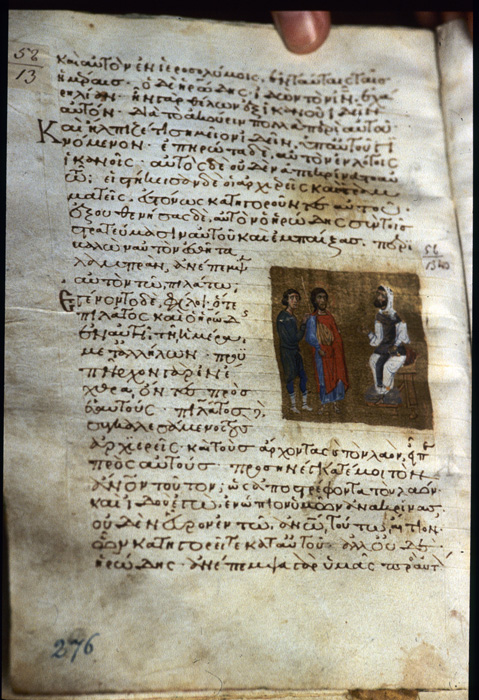 52
13
καὶ αὐτὸν ἐν ἱεροσολύμοις, ἐν ταύταις ταῖς
ἡμέραις· ὁ δὲ ἡρώδης, ἰδὼν τὸν ιν, ἐχά
ρη λίαν· ἦν γὰρ θέλων ἐξ ἱκανοῦ ἰδεῖν
αὐτὸν· διὰ τὸ ἀκούειν πολλὰ περὶ αὐτοῦ·
Καὶ ἤλπιζέ τι σημεῖον ἰδεῖν, ὑπ' αὐτοῦ γι
νόμενον· ἐπηρώτα δὲ, αὐτὸν ἐν λόγοις
ἱκανοῖς· αὐτὸς δὲ οὐδὲν ἀπεκρίνατο αὐ
τῷ· εἱστήκεισαν δὲ οἱ ἀρχιερεῖς καὶ οἱ γραμ
ματεῖς, εὐτόνως κατηγοροῦντες αὐτοῦ·
ἐξουθενήσας δὲ, αὐτὸν ὁ ἡρώδης σὺν τοῖς
στρατεύμασιν αὐτοῦ καὶ ἐμπαίξας, περι
βαλὼν αὐτὸν ἐσθῆτα
λαμπρὰν, ἀνέπεμψεν
αὐτὸν τῷ πιλάτῳ·
Ἐγένοντο δὲ, φίλοι ὅ τε
πιλάτος καὶ ὁ ἡρώδης
ἐν αὐτῇ τῇ ἡμέρᾳ
μετ' ἀλλήλων· προϋ
πῆρχον γὰρ ἐν ἔ
χθρᾳ ὄντες πρὸς
ἑαυτούς· πιλάτος δὲ
συγκαλεσάμενος τοὺς
ἀρχιερεῖς καὶ τοὺς ἄρχοντας καὶ τὸν λαὸν,
πρὸς αὐτούς· προσηνέγκατέ μοι τὸν
ἄνον τοῦτον, ὡς ἀποστρέφοντα τὸν λαόν·
καὶ ἰδοὺ ἐγὼ, ἐνώπιον ὑμῶν ἀνακρίνας
οὐδὲν εὗρον ἐν τῷ ἀνῳ τούτῳ αἴτιον
ὧν κατηγορεῖτε κατ' αὐτοῦ· ἀλλ' οὐδὲ
ἡρώδης· ἀνέπεμψα γὰρ ὑμᾶς πρὸς αὐτ
276